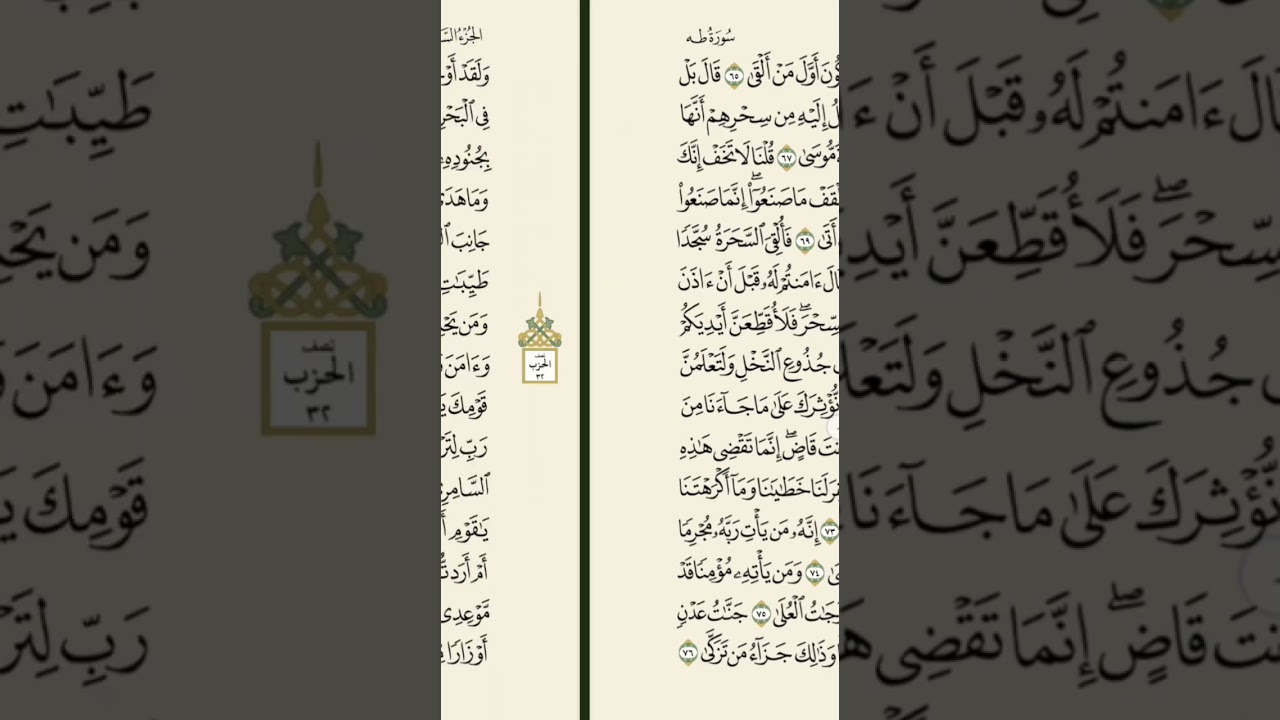 سُورَةُ طه
أَوَّلَ مَنْ أَلْقَىٰ ٦٥ قَالَ بَلْ
إِلَيْهِ مِن سِحْرِهِمْ أَنَّهَا
مُّوسَىٰ ٦٧ قُلْنَا لَا تَخَفْ إِنَّكَ
مَا صَنَعُوٓا۟ ۖ إِنَّمَا صَنَعُوا۟
أَتَىٰ ٦٩ فَأُلْقِىَ ٱلسَّحَرَةُ سُجَّدًا
ءَامَنتُمْ لَهُۥ قَبْلَ أَنْ ءَاذَنَ
فَلَأُقَطِّعَنَّ أَيْدِيَكُمْ
جُذُوعِ ٱلنَّخْلِ وَلَتَعْلَمُنَّ
نُّؤْثِرَكَ عَلَىٰ مَا جَآءَنَا مِنَ
قَاضٍ ۖ إِنَّمَا تَقْضِى هَـٰذِهِ
لَنَا خَطَـٰيَـٰنَا وَمَآ أَكْرَهْتَنَا
٧٣ إِنَّهُۥ مَن يَأْتِ رَبَّهُۥ مُجْرِمًا
٧٤ وَمَن يَأْتِهِۦ مُؤْمِنًا قَدْ
ٱلْعُلَىٰ ٧٥ جَنَّـٰتُ عَدْنٍ
وَذَٰلِكَ جَزَآءُ مَن تَزَكَّىٰ ٧٦
نصف
الحزب
٣٢
الجُزْءُ
وَلَقَدْ
فِى ٱلْبَحْرِ
بِجُنُودِهِۦ
وَمَا هَدَىٰ
جَانِبَ
طَيِّبَـٰتِ
وَمَن
وَءَامَنَ
قَوْمِكَ
رَبِّ
ٱلسَّامِرِ
يَـٰقَوْمِ
أَمْ أَرَدتُّ
مَّوْعِدِى
أَوْزَارًا